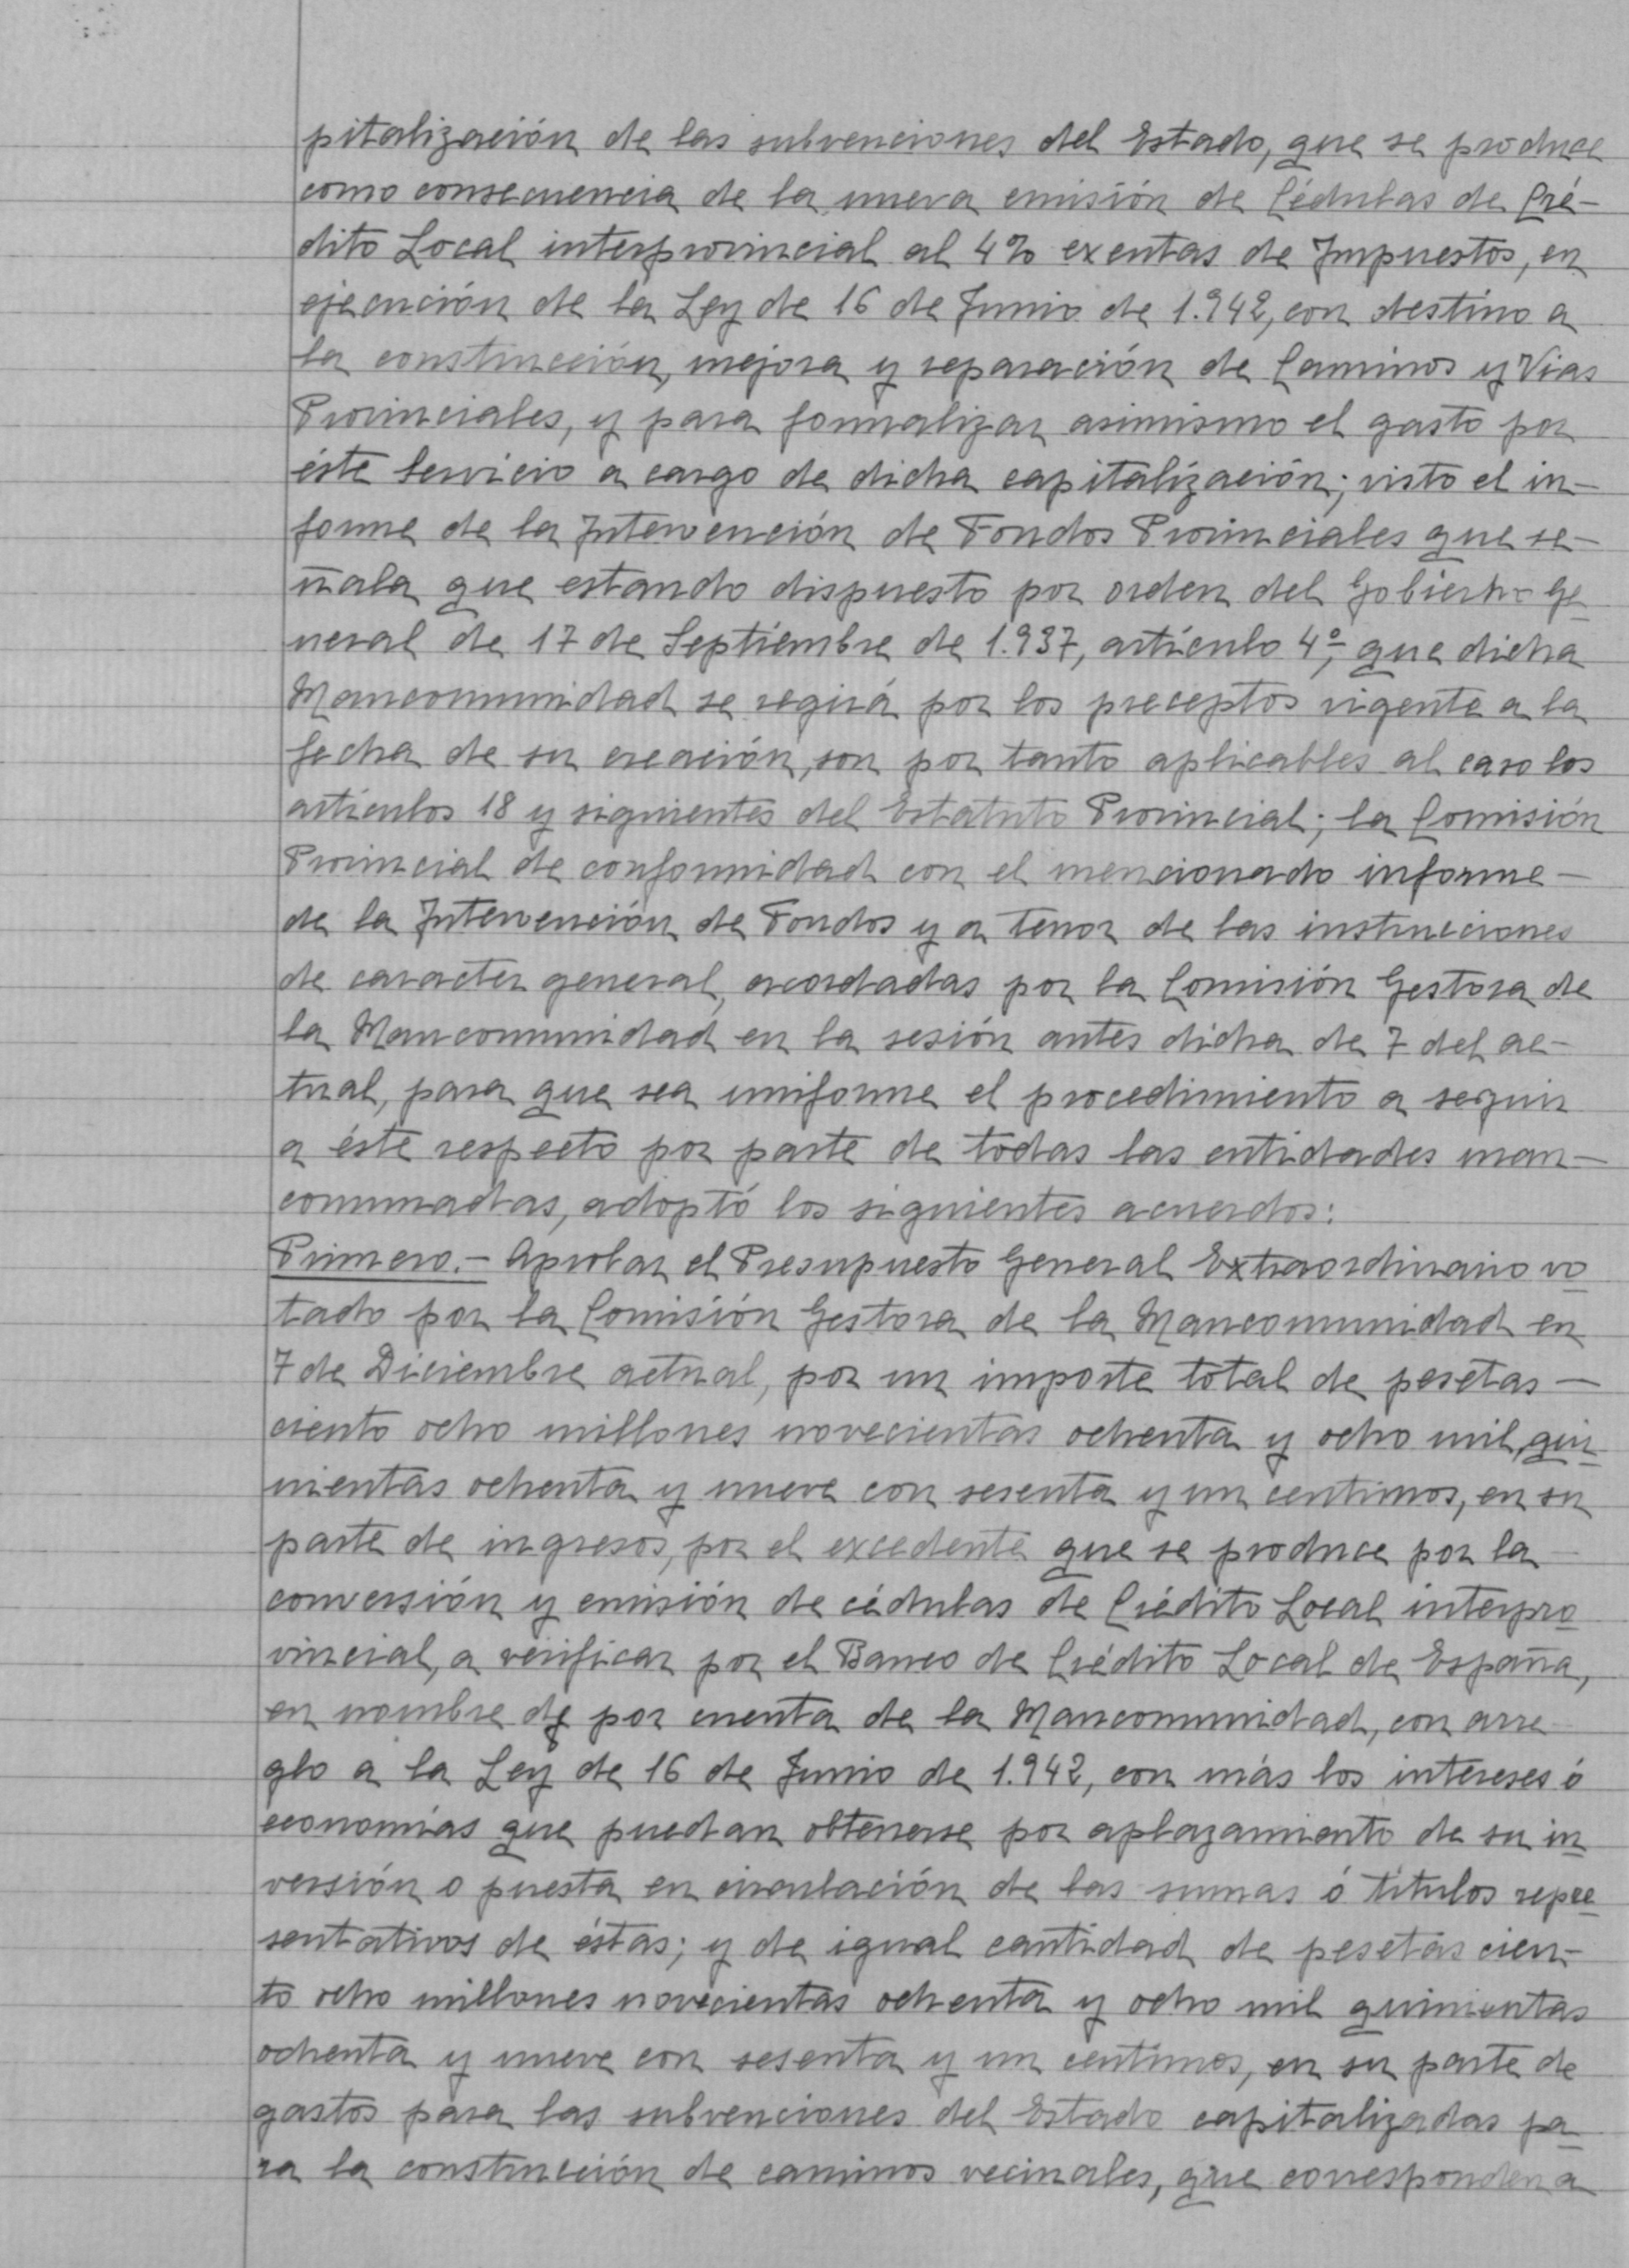 pitalización de las subvenciones del Estado, que se produce
como consecuencia de la nueva emisión de Cédulas de Cré-
dito Local interprovincial al 4% exentas de Impuestos, en
ejecución de la Ley de 16 de Junio de 1.942, con destino a
la construcción, mejora y reparación de Caminos y Vias
Provinciales, y para formalizar asimismo el gasto por
éste servicio a cargo de dicha capitalización; visto el in-
forme de la Intervención de Fondos Provinciales que se-
ñala que estando dispuesto por orden del Gobierno Ge
neral de 17 de Septiembre de 1.937, artículo 4º, que dicha
Mancomunidad se regirá por los preceptos vigente a la
fecha de su creación, son por tanto aplicables al caso los
artículos 18 y siguientes del Estatuto Provincial; la Comisión
Provincial de conformidad con el mencionado informe-
de la Intervención de Fondos y a tenor de las instrucciones
de caracter general, acordadas por la Comisión Gestora de
la Mancomunidad en la sesión antes dicha de 7 del ac-
tual, para que sea uniforme el procedimiento a seguir
a éste respecto por parte de todas las entidades man-
comunadas, adoptó los siguientes acuerdos:
Primero.- Aprobar el Presupuesto General Extraordinario vo
tado por la Comisión Gestora de la Mancomunidad en
7 de Diciembre actual, por un importe total de pesetas -
ciento ocho millones novecientas ochenta y ocho mil, qui
nientas ochenta y nueve con sesenta y un centimos, en su
parte de ingresos, por el excedente que se produce por la-
conversión y emisión de cédulas de Crédito Local interpro
vincial, a verificar por el Banco de Crédito Local de España,
en nombre de por cuenta de la Mancomunidad, con arre
glo a la Ley de 16 de Junio de 1.942, con más los intereses ó
economías que puedan obtenerse por aplazamiento de su in
versión o puesta en circulación de las sumas ó títulos repre
sentativos de éstas; y de igual cantidad de pesetas cien-
to ocho millones novecientas ochenta y ocho mil quinientas
ochenta y nueve con sesenta y un centimos, en su parte de
gastos para las subvenciones del Estado capitalizadas pa
ra la construcción de caminos vecinales, que corresponden a